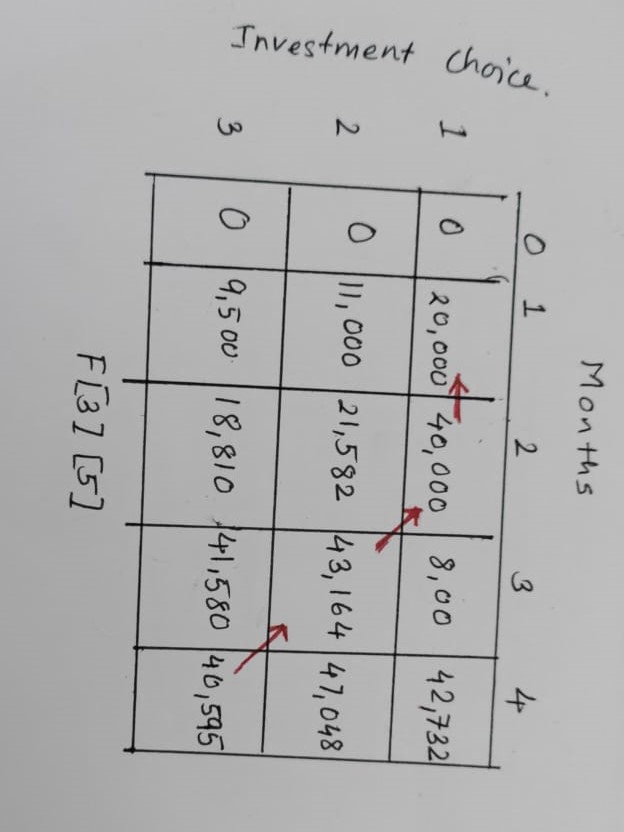 Months
Investment Choice.
0 1 2 3 4
1 0 20,000 40,000 8,00 42,732
2 0 11,000 21,582 43,164 47,048
3 0 9,500 18,810 41,580 40,595
F[3] [5]